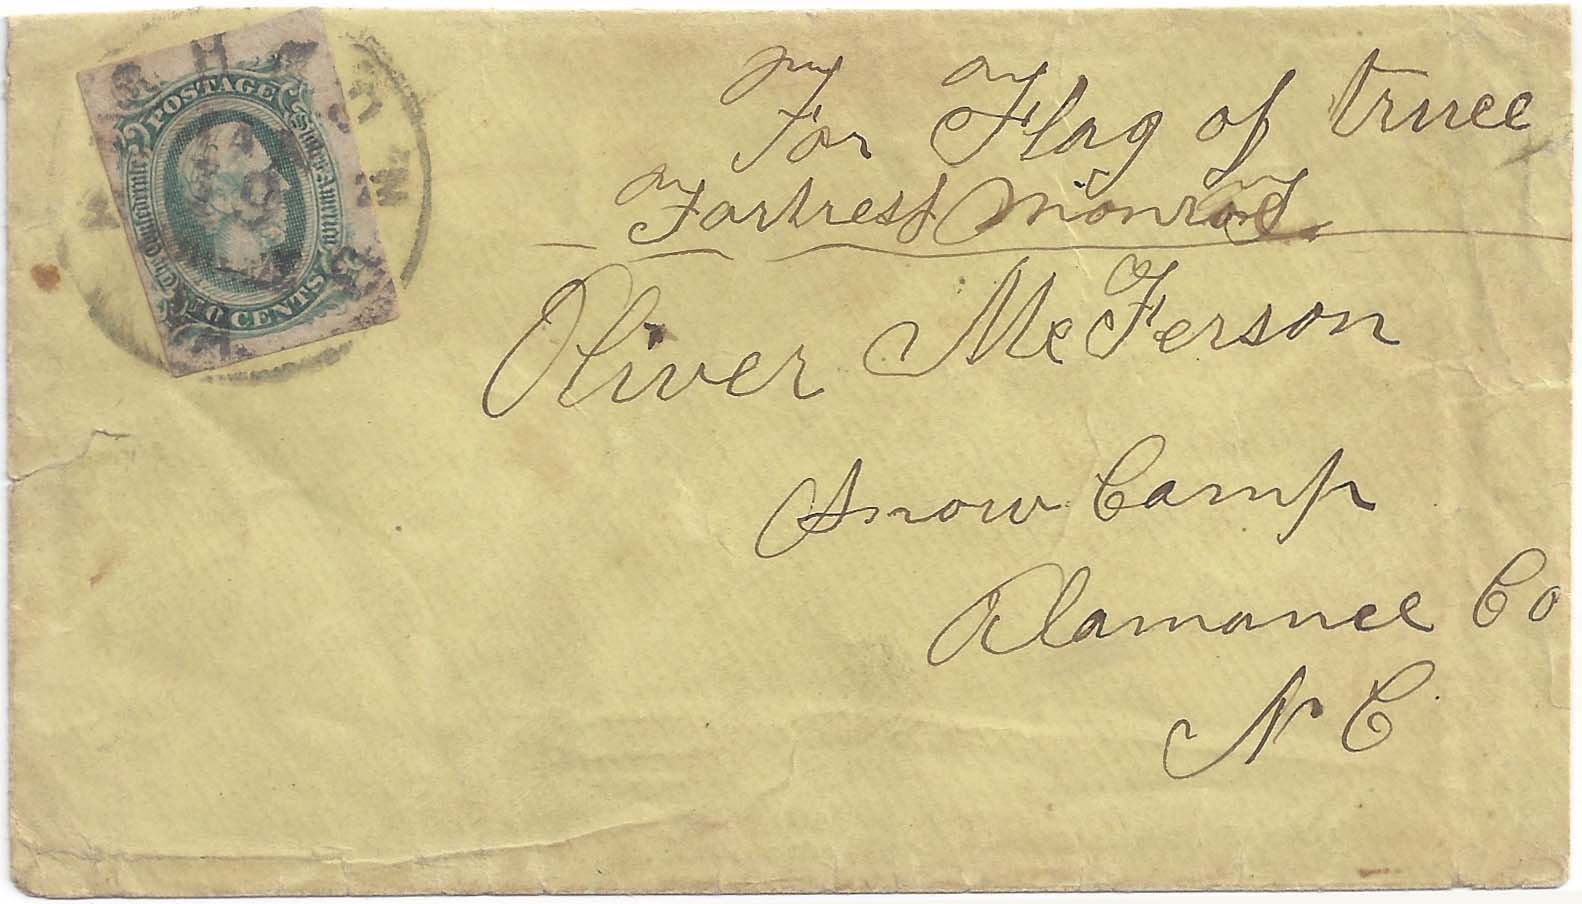 POSTAGE
The Confederate States America
10 CENTS
For Flag of truce
Fortress Monroe
Oliver McFerson
Snow Camp
Alamance Co
N C